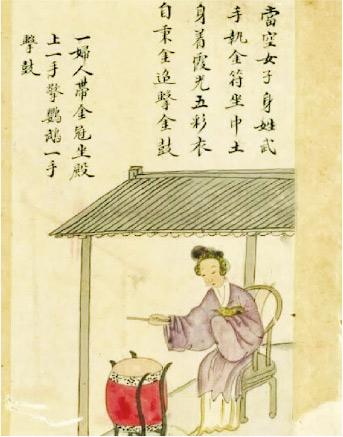 當空女子身姓武
手執金符坐中土
身着霞光五彩衣
自秉金追擊金鼓
一婦人帶金冠坐殿
上一手擎鸚鵡一手
擊鼓